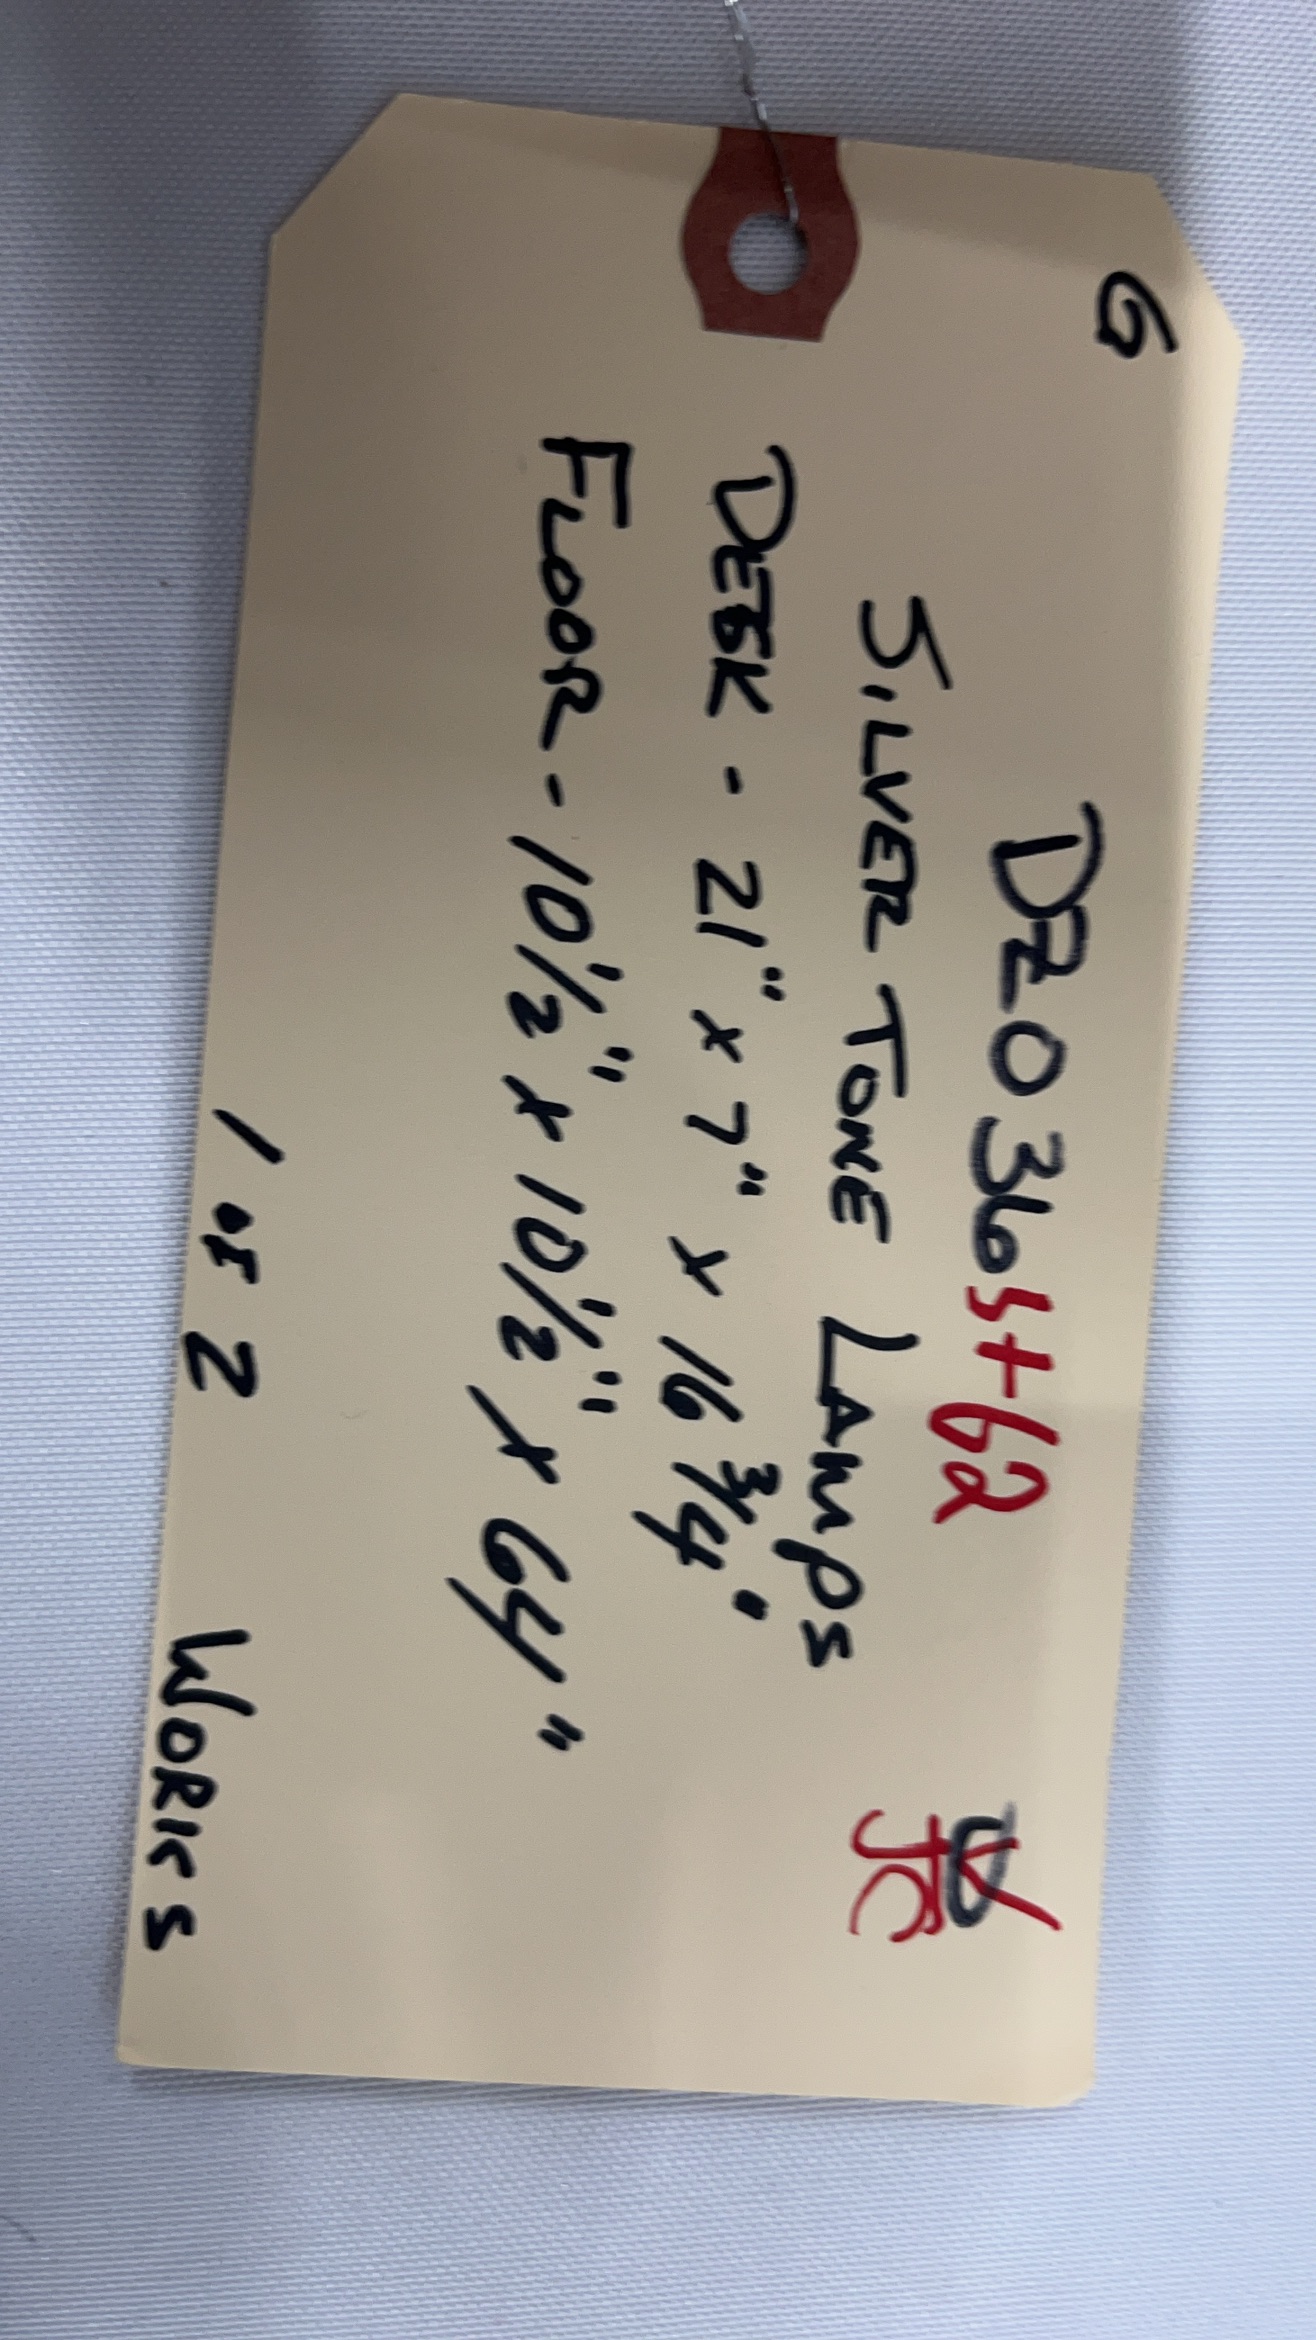 G
DZ036 5+62
SILVER TONE LAMPS
DESK - 21" x 7" x 16 3/4"
FLOOR - 10 1/2" x 10 1/2" x 64"
1 OF 2 WORKS